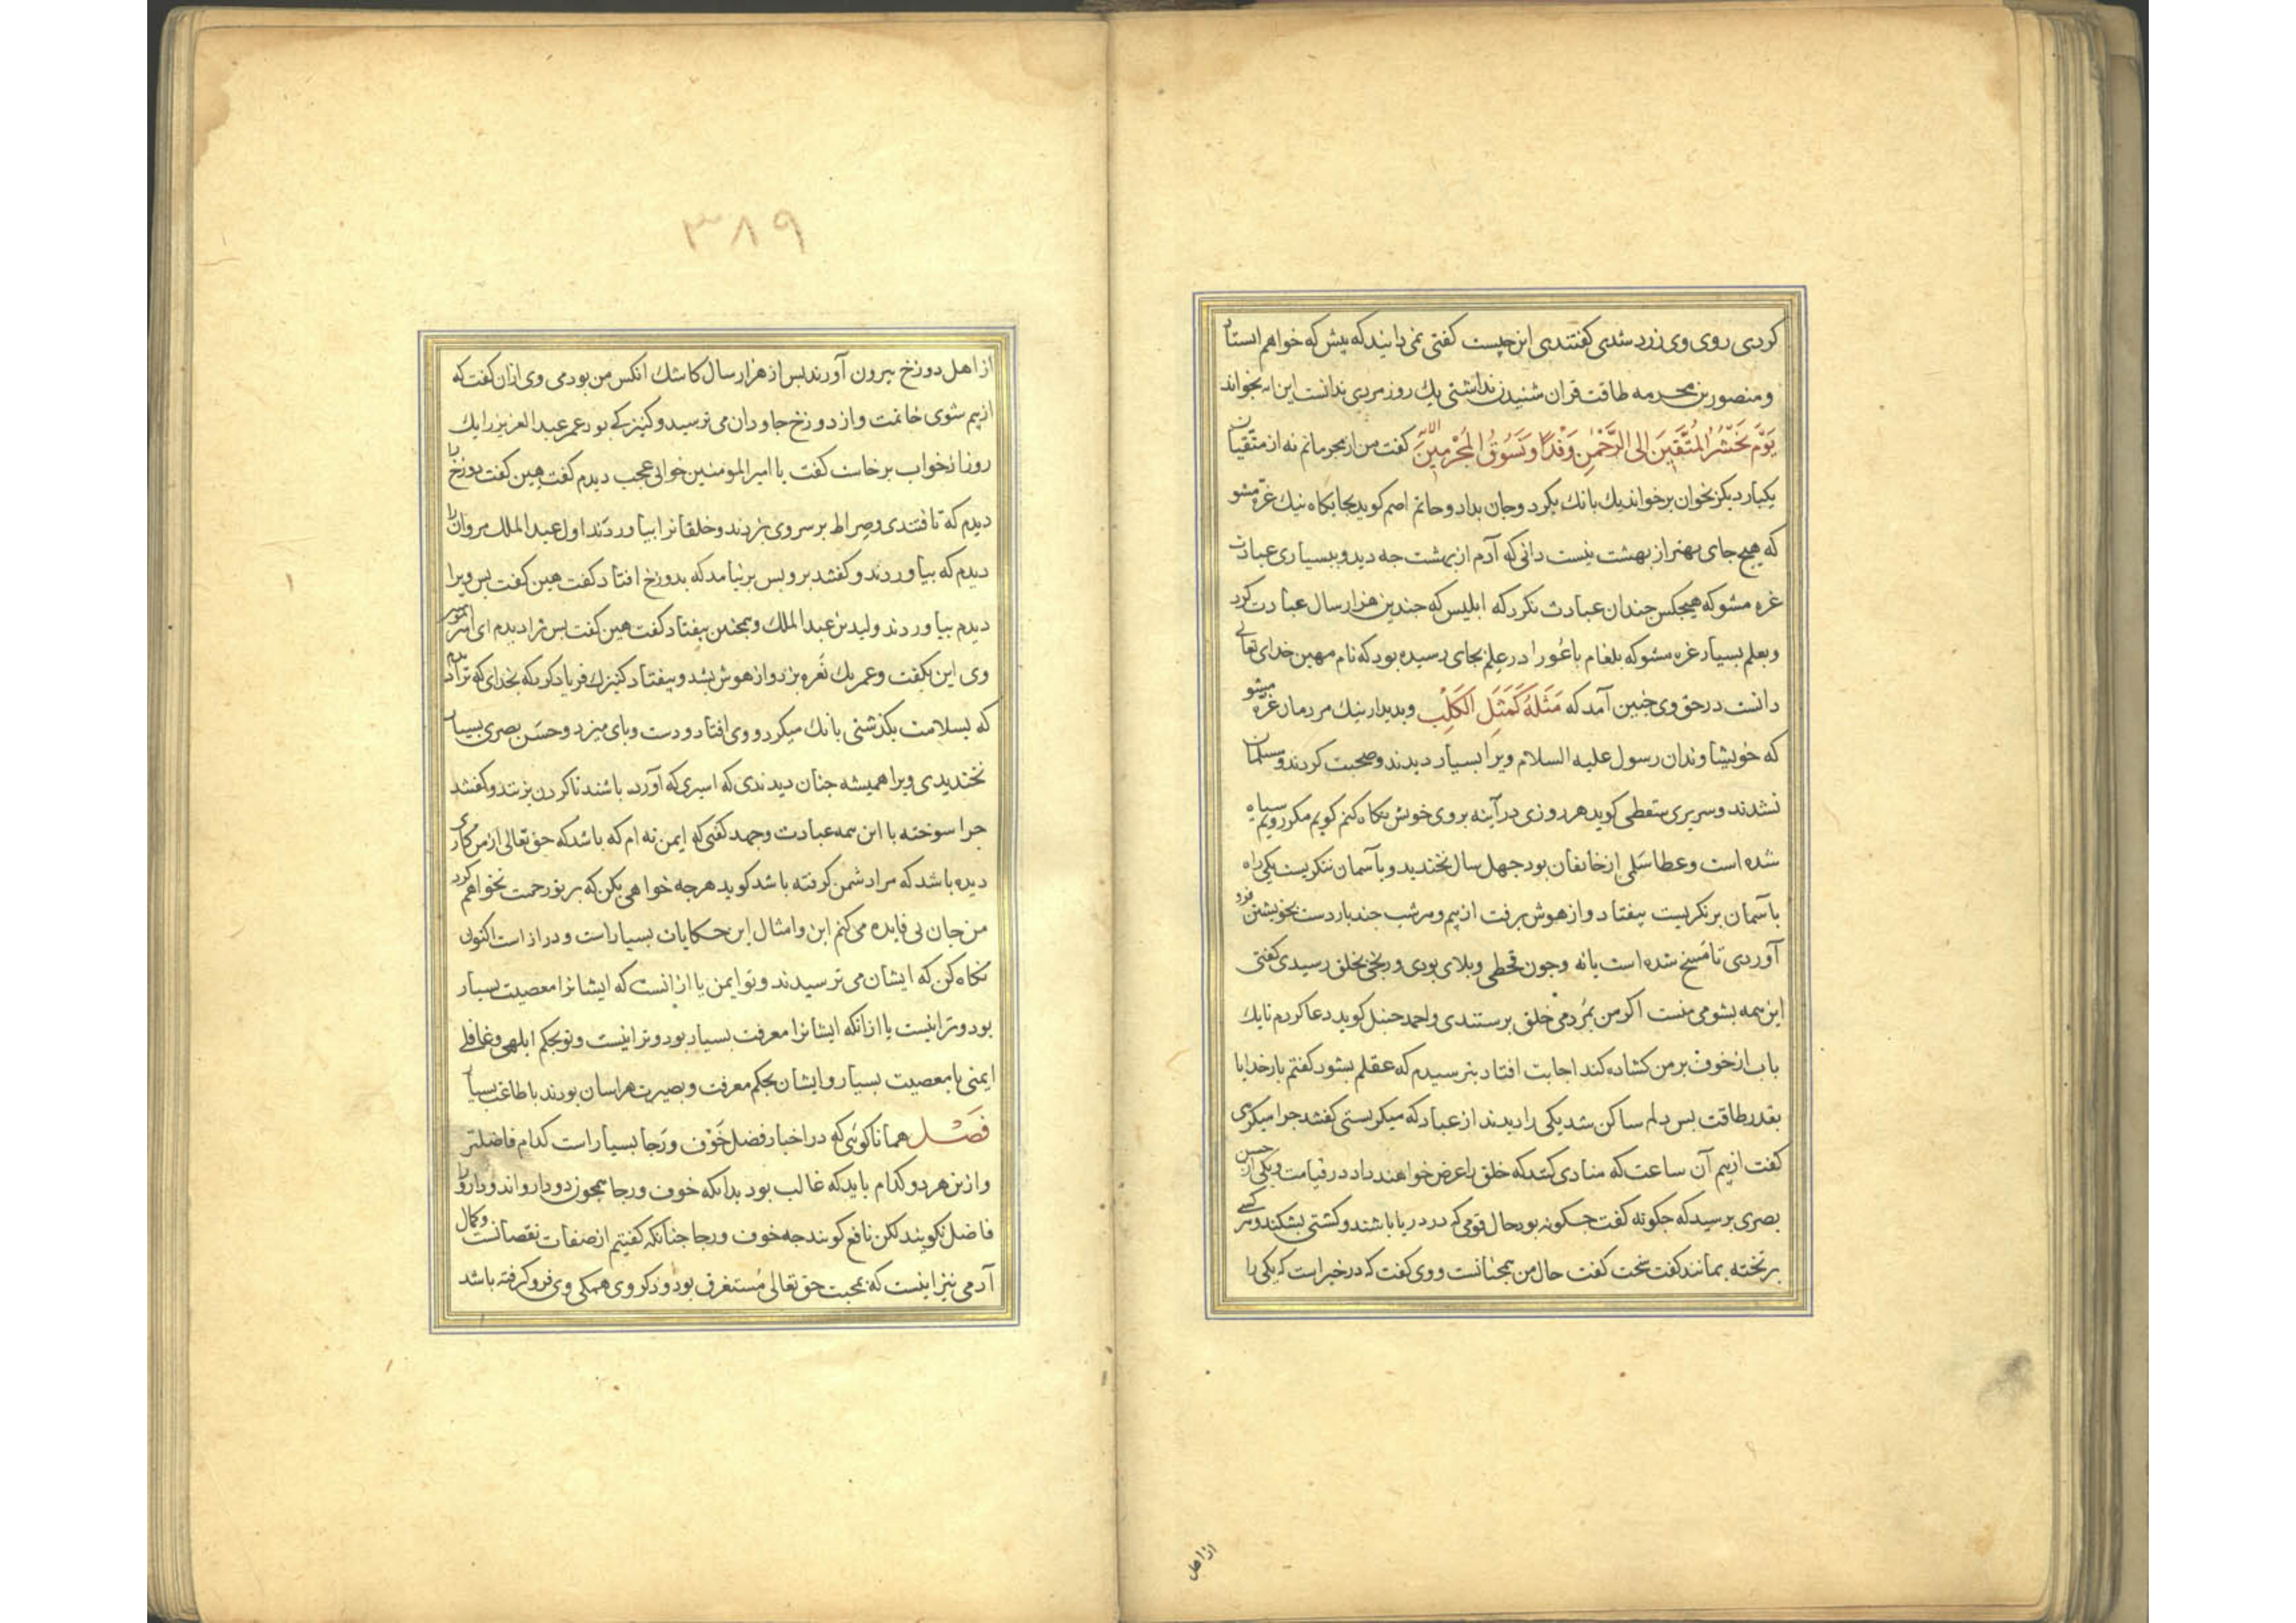 کردی روی وی زرد شدی کفتندی این چیست کفتی نمی دانید که پیش که خواهم ایستاد
و منصور بن محرمه طاقت قران شنیدن نداشتی یك روز مردی ندانست این ایه بخواند
یَوْمَ نَحْشُرُ المُتَّقِینَ اِلی الرَّحْمٰنِ وَفْدًا وَ نَسُوقُ المُجْرِمِینَ الآیه کفت من از مجرمانم نه از متّقیان
یکبار دیکر بخوان برخواند یك بانك بکرد و جان بداد و حاتم اصم کوید بجایکاه نیك غرّه مشو
که هیچ جای بهتر از بهشت نیست دانی که آدم از بهشت چه دید و ببسیاری عبادت
غره مشو که هیچکس چندان عبادت نکرد که ابلیس که چندین هزار سال عبادت کرد
و بعلم بسیار غره مشو که بلعام باعُورا در علم بجای رسیده بود که نام مهین خدای تعالی
دانست در حق وی چنین آمد که مَثَلُهُ کَمَثَلِ الکَلْبِ و بدیدار نیك مردمان غرّه مشو
که خویشاوندان رسول علیه السلام ویرا بسیار دیدند و صحبت کردند و مسلمان
نشدند و سریری سقطی کوید هر روزی در آینه بروی خویش نکاه کنم کویم مکر رویم سیاه
شده است و عطا سَلمی از خائفان بود چهل سال نخندید و بآسمان ننکریست یکی راه
بآسمان برنکریست بیفتاد و از هوش برفت از بیم و هر شب چند بار دست بخویشتن فرو
آوردی تا مسخ شده است یا نه و چون قحطی و بلای بودی و رنجی بخلق رسیدی کفتی
این همه بشومی منست اکر من بمُردمی خلق برستندی و احمد حنبل کوید دعا کردم تا یك
باب از خوف بر من کشاده کند اجابت افتاد بترسیدم که عقلم بشود کفتم بار خدایا
بقدر طاقت بس دلم ساکن شد یکی را دیدند از عباد که میکریستی کفتند چرا میکری
کفت از بیم آن ساعت که منادی کند که خلق را عرض خواهند داد در قیامت و یکی از حسن
بصری پرسید که چکونه کفت چکونه بود حال قومی که در دریا باشند و کشتی بشکند و هر کسی
بر تخته بمانند کفت سخت کفت حال من همچنانست و وی کفت که در خبر است که یکی را
از اهل
۳۸۹
از اهل دوزخ بیرون آورند بس از هزار سال کاشك انکس من بودمی وی ازان کفت که
از بیم شوی خاتمت و از دوزخ جاودان می ترسید و کنیزکی بود عمر عبد العزیز را یك
روز از خواب برخاست کفت یا امیر المومنین خوابی عجب دیدم کفت هین کفت دوزخ را
دیدم که تافتندی و صراط بر سر وی بزدند و خلقانرا بیاوردند اول عبد الملك مروان را
دیدم که بیاوردند و کفتند برو بس برنیامد که بدوزخ افتاد کفت هین کفت بس ویرا
دیدم بیاوردند ولید بن عبد الملك و همچنین بیفتاد کفت هین کفت بس ترا دیدم ای امیر المومنین
وی این بکفت و عمر یك نَعره بزد و از هوش بشد و بیفتاد کنیزك فریاد کرد که بخدای که ترا دیدم
که بسلامت بکذشتی بانك میکرد و وی افتاد و دست و پای میزد و حَسَن بصری بسیار
نخندیدی ویرا همیشه چنان دیدندی که اسیری که آورده باشند تا کردن بزنند و کفتند
چرا سوخته با این همه عبادت و جهد کفتی که ایمن نه ام که باشد که حق تعالی از من کاری
دیده باشد که مرا دشمن کرفته باشد کوید هر چه خواهی بکن که بر تو رحمت نخواهم کرد
من جان بی فایده می کنم این و امثال این حکایات بسیار است و دراز است اکنون
نکاه کن که ایشان می ترسیدند و تو ایمن یا ازانست که ایشانرا معصیت بسیار
بود و ترا نیست یا ازانکه ایشانرا معرفت بسیار بود و ترا نیست و تو بحکم ابلهی و غافلی
ایمنی با معصیت بسیار و ایشان بحکم معرفت و بصیرت هراسان بودند با طاعت بسیار
فَصْل همانا کوئی که در اخبار فضل خَوْف و رَجا بسیار است کدام فاضلتر
و ازین هر دو کدام باید که غالب بود بدانکه خوف و رجا همچون دو دارو اند و دارو را
فاضل نکویند لکن نافع کویند چه خوف و رجا چنانکه کفتیم از صفات نقصانست و کمال
آدمی نیز اینست که بمحبت حق تعالی مُستغرق بود و ذکر وی همکی وی فرو کرفته باشد